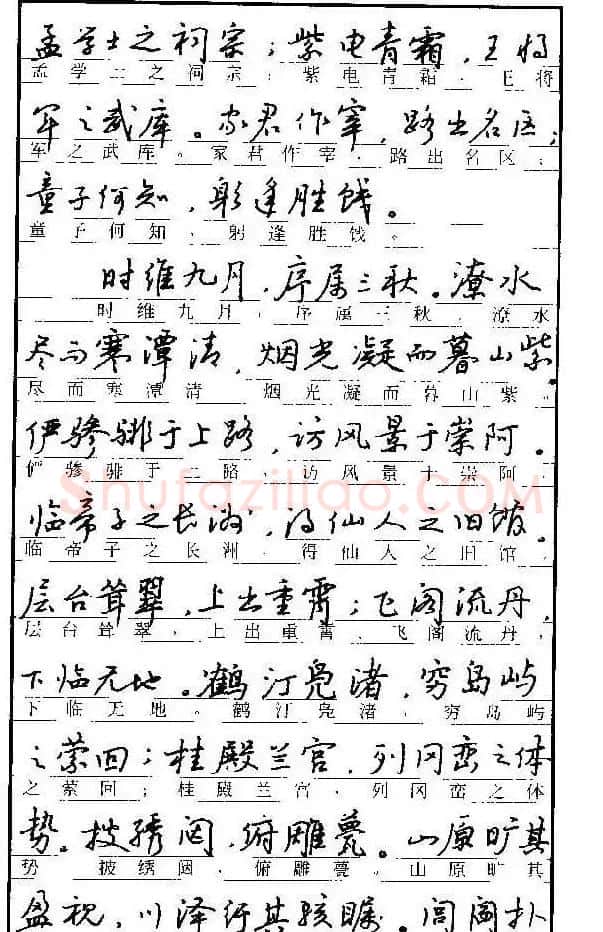 孟学士之词宗；紫电青霜，王将
孟学士之词宗；紫电青霜，王将
军之武库。家君作宰，路出名区；
军之武库。家君作宰，路出名区；
童子何知，躬逢胜饯。
童子何知，躬逢胜饯。
时维九月，序属三秋。潦水
时维九月，序属三秋。潦水
尽而寒潭清，烟光凝而暮山紫。
尽而寒潭清，烟光凝而暮山紫。
俨骖騑于上路，访风景于崇阿。
俨骖騑于上路，访风景于崇阿。
Shufaziliao.COM
临帝子之长洲，得仙人之旧馆。
临帝子之长洲，得仙人之旧馆。
层台耸翠，上出重霄；飞阁流丹，
层台耸翠，上出重霄；飞阁流丹，
下临无地。鹤汀凫渚，穷岛屿
下临无地。鹤汀凫渚，穷岛屿
之萦回；桂殿兰宫，列冈峦之体
之萦回；桂殿兰宫，列冈峦之体
势。披绣闼，俯雕甍。山原旷其
势。披绣闼，俯雕甍。山原旷其
盈视，川泽纡其骇瞩。闾阎扑